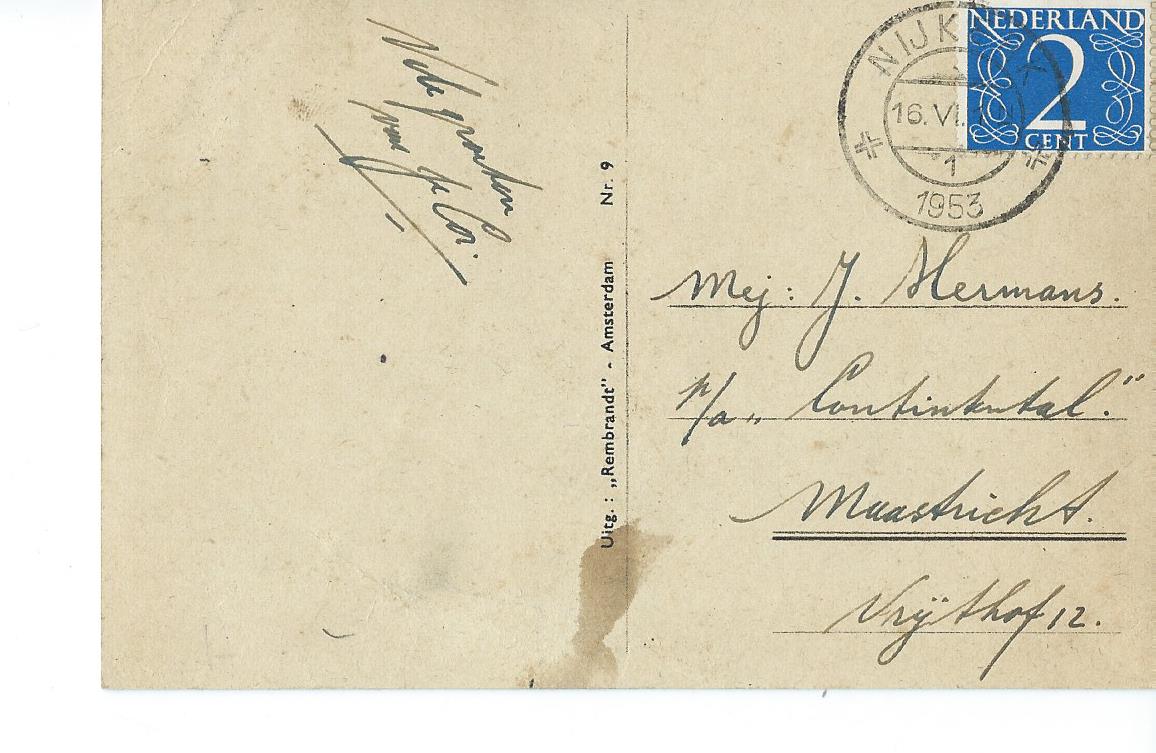 Vele groeten
van de Cor.
Uitg. : „Rembrandt" - Amsterdam Nr. 9
NIJK
16.VI.
1
1953
NEDERLAND
2
CENT
Mej: J. Hermans.
p/a „Continental."
Maastricht.
Vrijthof 12.